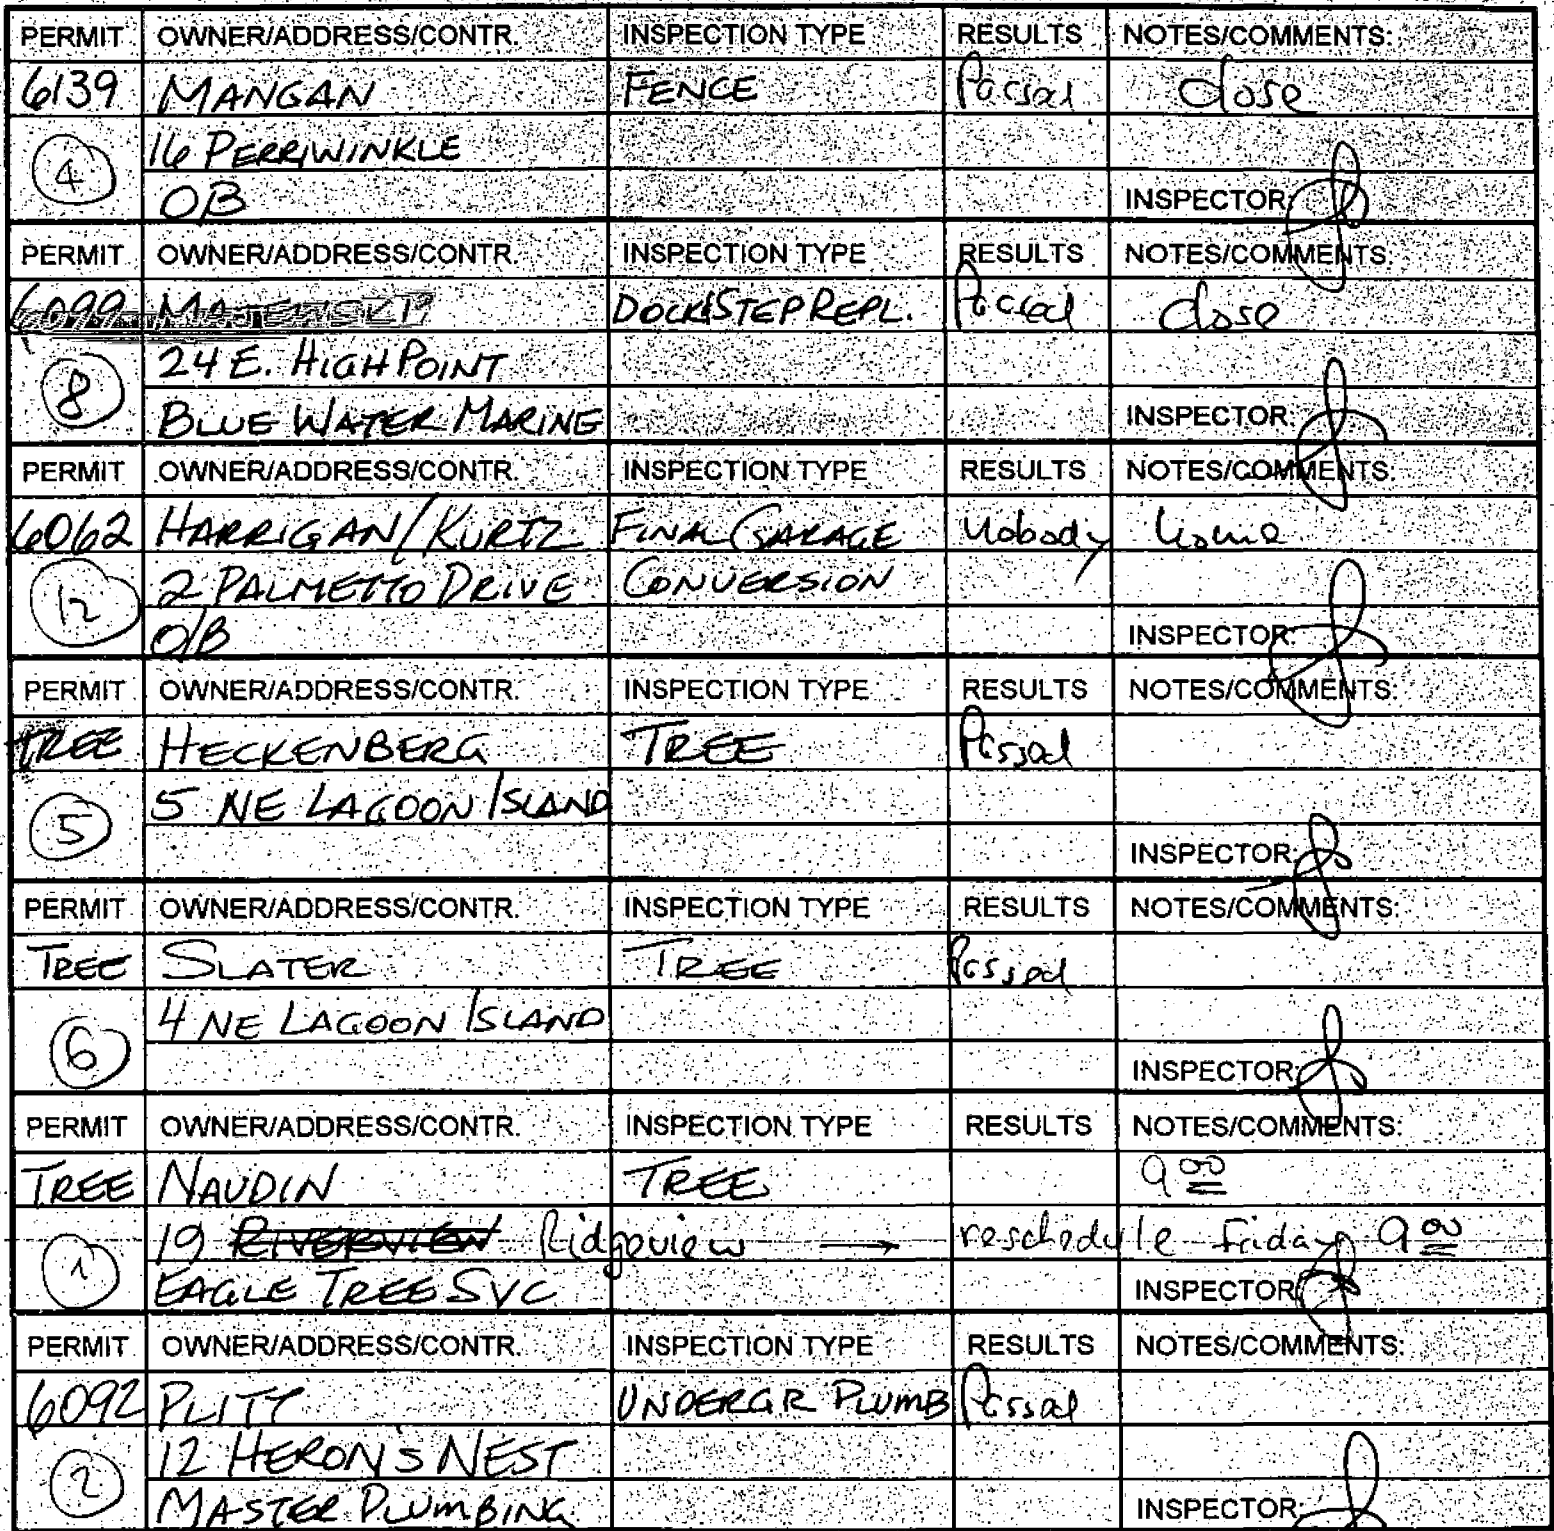 PERMIT OWNER/ADDRESS/CONTR. INSPECTION TYPE RESULTS NOTES/COMMENTS:
6139 MANGAN FENCE Passed close
4 16 PERRIWINKLE
OB INSPECTOR:
PERMIT OWNER/ADDRESS/CONTR. INSPECTION TYPE RESULTS NOTES/COMMENTS:
6099 DOCK&STEP REPL. Passed close
8 24 E. HIGH POINT
BLUE WATER MARINE INSPECTOR:
PERMIT OWNER/ADDRESS/CONTR. INSPECTION TYPE RESULTS NOTES/COMMENTS:
6062 HARRIGAN/KURTZ FINAL GARAGE Nobody home
12 2 PALMETTO DRIVE CONVERSION
O/B INSPECTOR:
PERMIT OWNER/ADDRESS/CONTR. INSPECTION TYPE RESULTS NOTES/COMMENTS:
TREE HECKENBERG TREE Passed
5 5 NE LAGOON ISLAND
INSPECTOR:
PERMIT OWNER/ADDRESS/CONTR. INSPECTION TYPE RESULTS NOTES/COMMENTS:
TREE SLATER TREE Passed
6 4 NE LAGOON ISLAND
INSPECTOR:
PERMIT OWNER/ADDRESS/CONTR. INSPECTION TYPE RESULTS NOTES/COMMENTS:
TREE NAUDIN TREE 9 00
1 19 RIVERVIEW Ridgeview → reschedule Friday 9 00
EAGLE TREE SVC INSPECTOR:
PERMIT OWNER/ADDRESS/CONTR. INSPECTION TYPE RESULTS NOTES/COMMENTS:
6092 PLITT UNDERGR PLUMB Passed
2 12 HERON'S NEST
MASTER PLUMBING INSPECTOR: